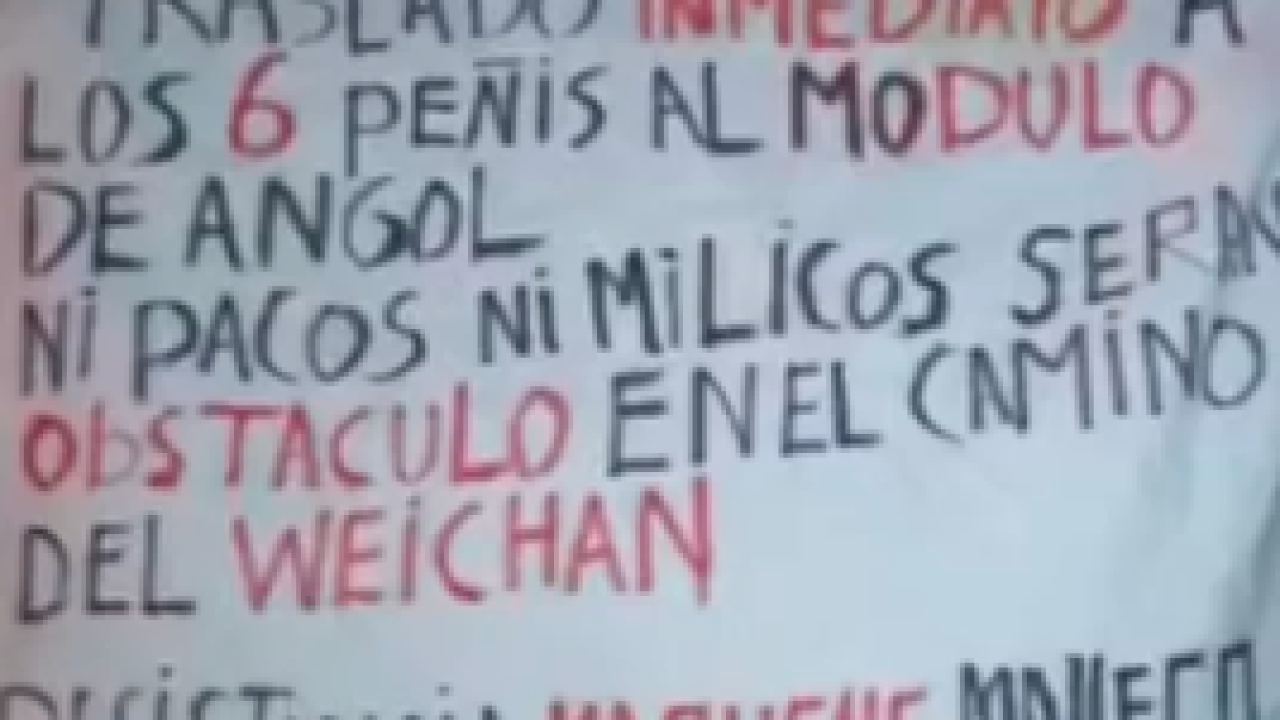 TRASLADO INMEDIATO A
LOS 6 PEÑIS AL MODULO
DE ANGOL
NI PACOS NI MILICOS SERAN
OBSTACULO EN EL CAMINO
DEL WEICHAN